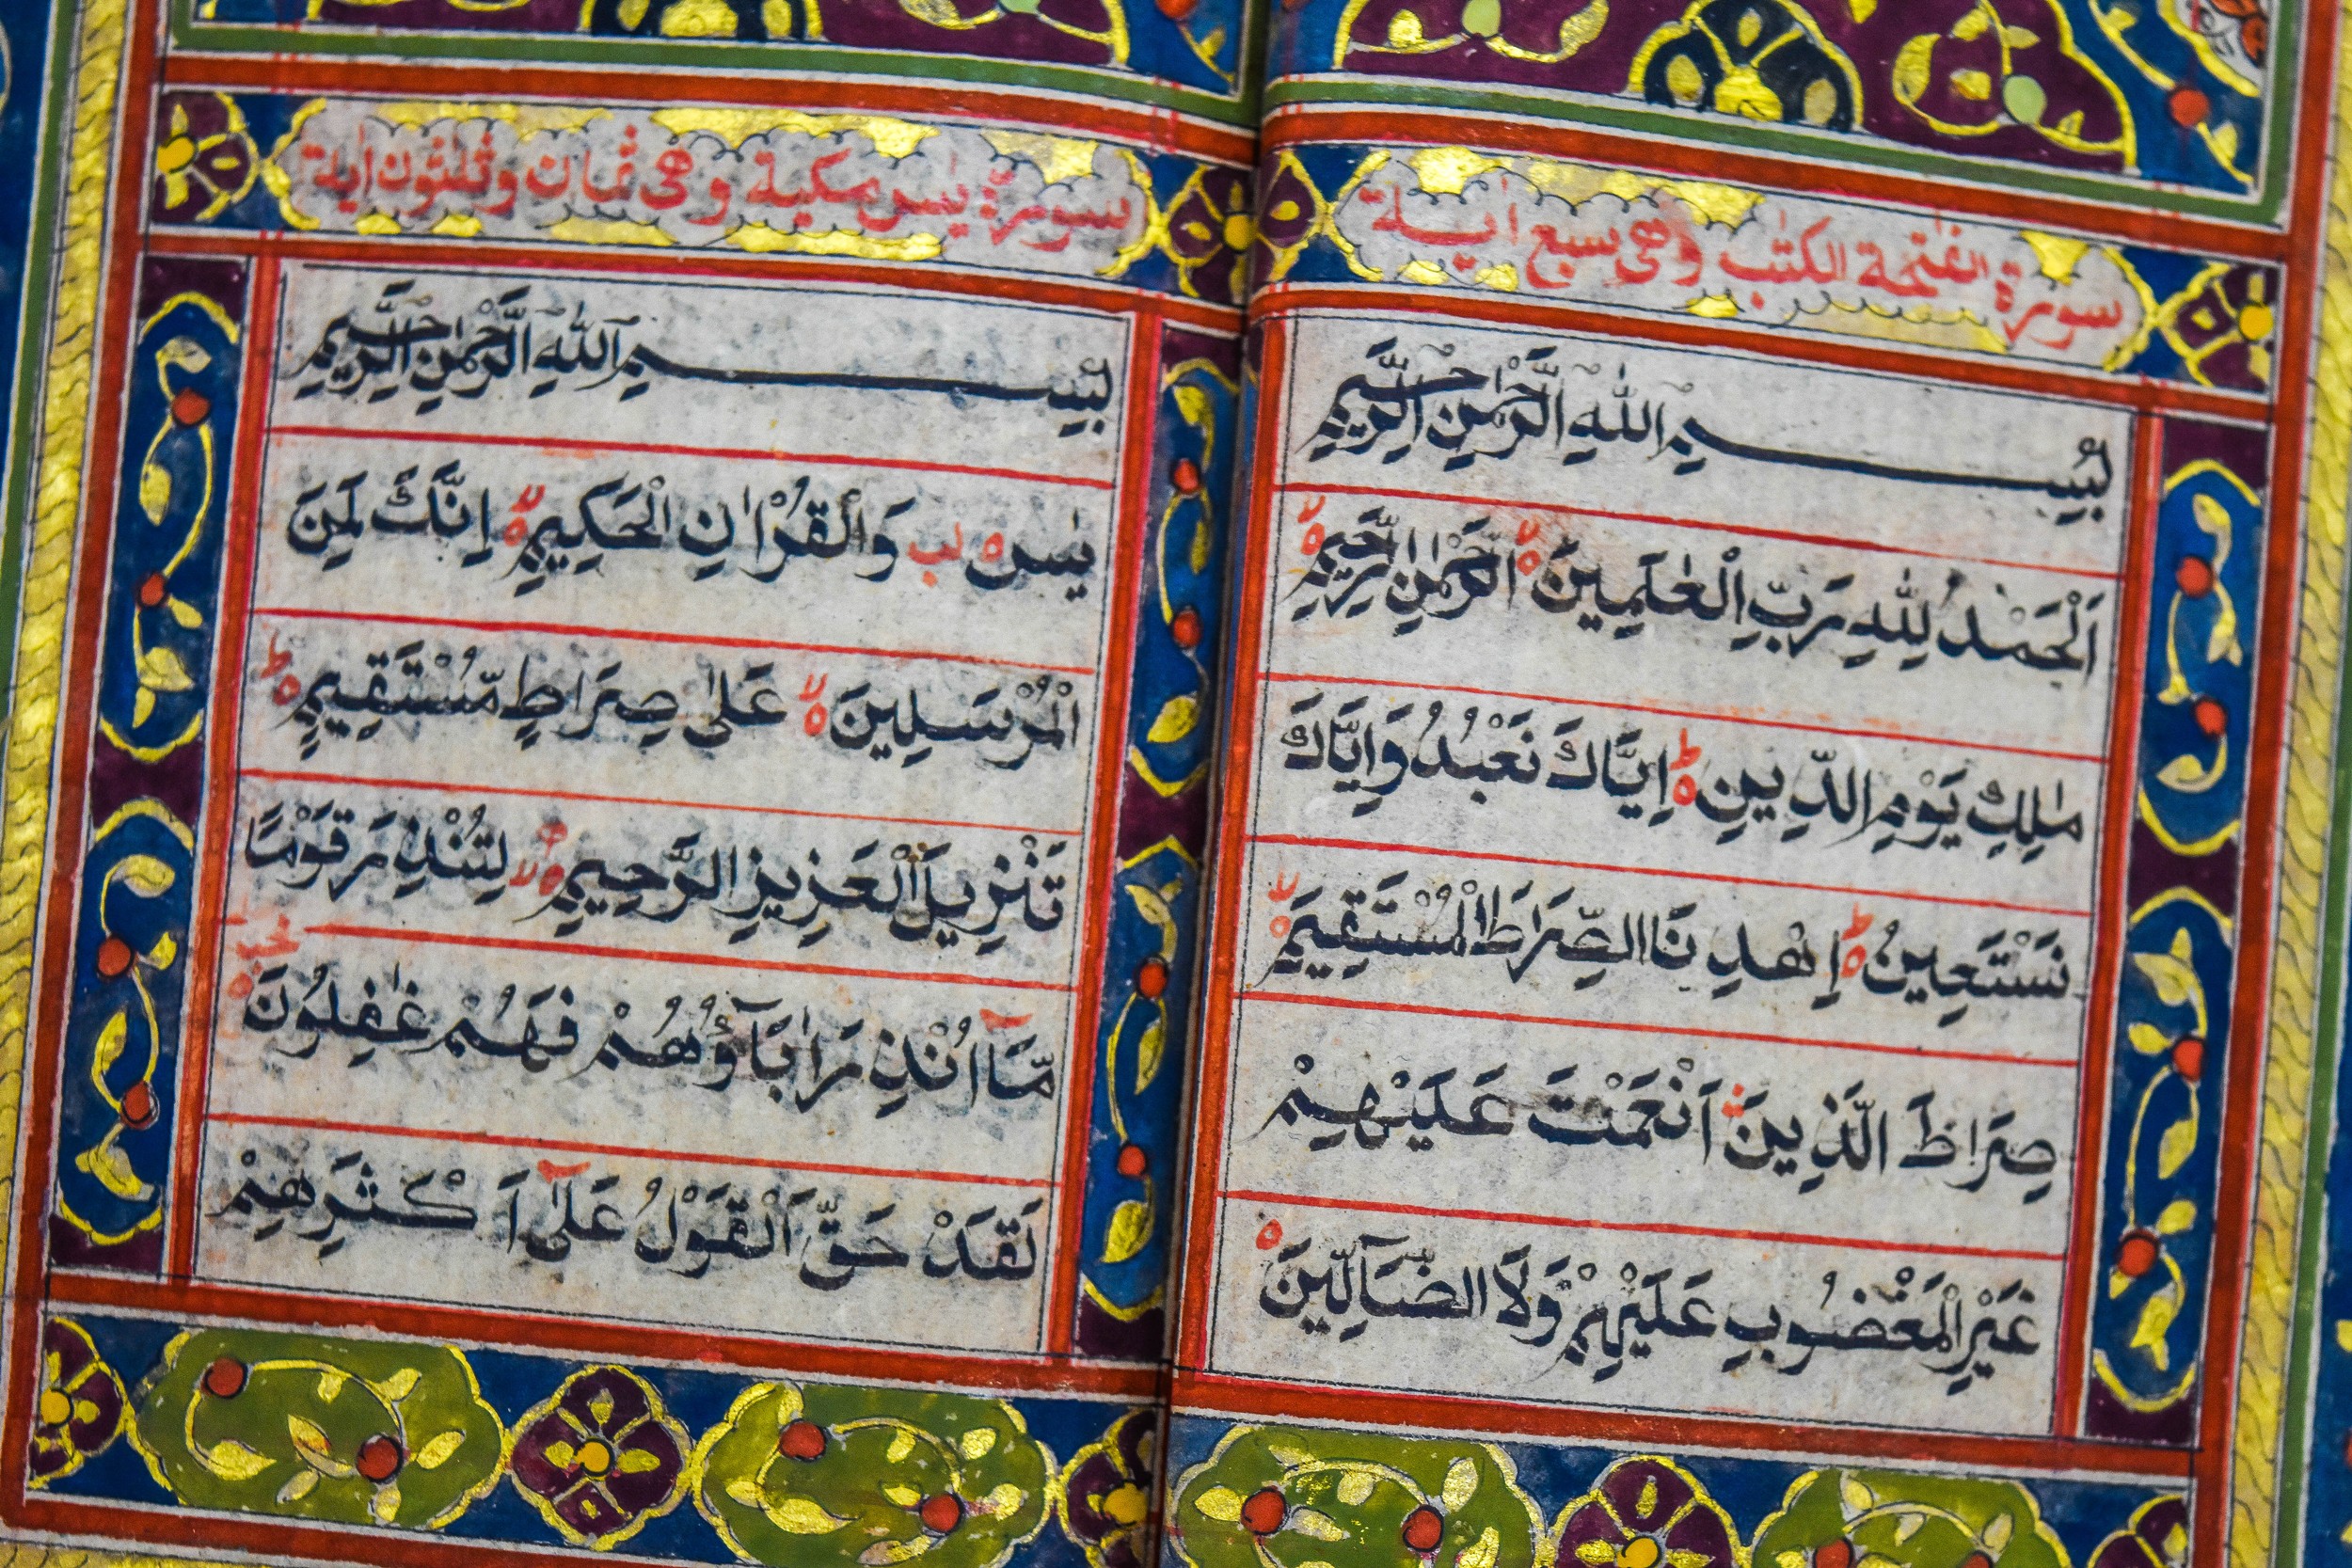 سورة الفٰتحة الكتٰب وهى سبع اية
بِسْمِ اللّٰهِ الرَّحْمٰنِ الرَّحِيْمِ
اَلْحَمْدُ لِلّٰهِ رَبِّ الْعٰلَمِيْنَ ۙ الرَّحْمٰنِ الرَّحِيْمِ ۙ
مٰلِكِ يَوْمِ الدِّيْنِ ؕ اِيَّاكَ نَعْبُدُ وَاِيَّاكَ
نَسْتَعِيْنُ ؕ اِهْدِنَا الصِّرَاطَ الْمُسْتَقِيْمَ ۙ
صِرَاطَ الَّذِيْنَ اَنْعَمْتَ عَلَيْهِمْ
غَيْرِ الْمَغْضُوْبِ عَلَيْهِمْ وَلَا الضَّآلِّيْنَ ه
سورة يٰس مكية وهى ثمان وثلثون اية
بِسْمِ اللّٰهِ الرَّحْمٰنِ الرَّحِيْمِ
يٰس ه لب وَالْقُرْاٰنِ الْحَكِيْمِ ۙ اِنَّكَ لَمِنَ
الْمُرْسَلِيْنَ ۙ عَلٰى صِرَاطٍ مُّسْتَقِيْمٍ ؕ
تَنْزِيْلَ الْعَزِيْزِ الرَّحِيْمِ ۙ لِتُنْذِرَ قَوْمًا
مَّآ اُنْذِرَ اٰبَآؤُهُمْ فَهُمْ غٰفِلُوْنَ
لَقَدْ حَقَّ الْقَوْلُ عَلٰٓى اَكْثَرِهِمْ